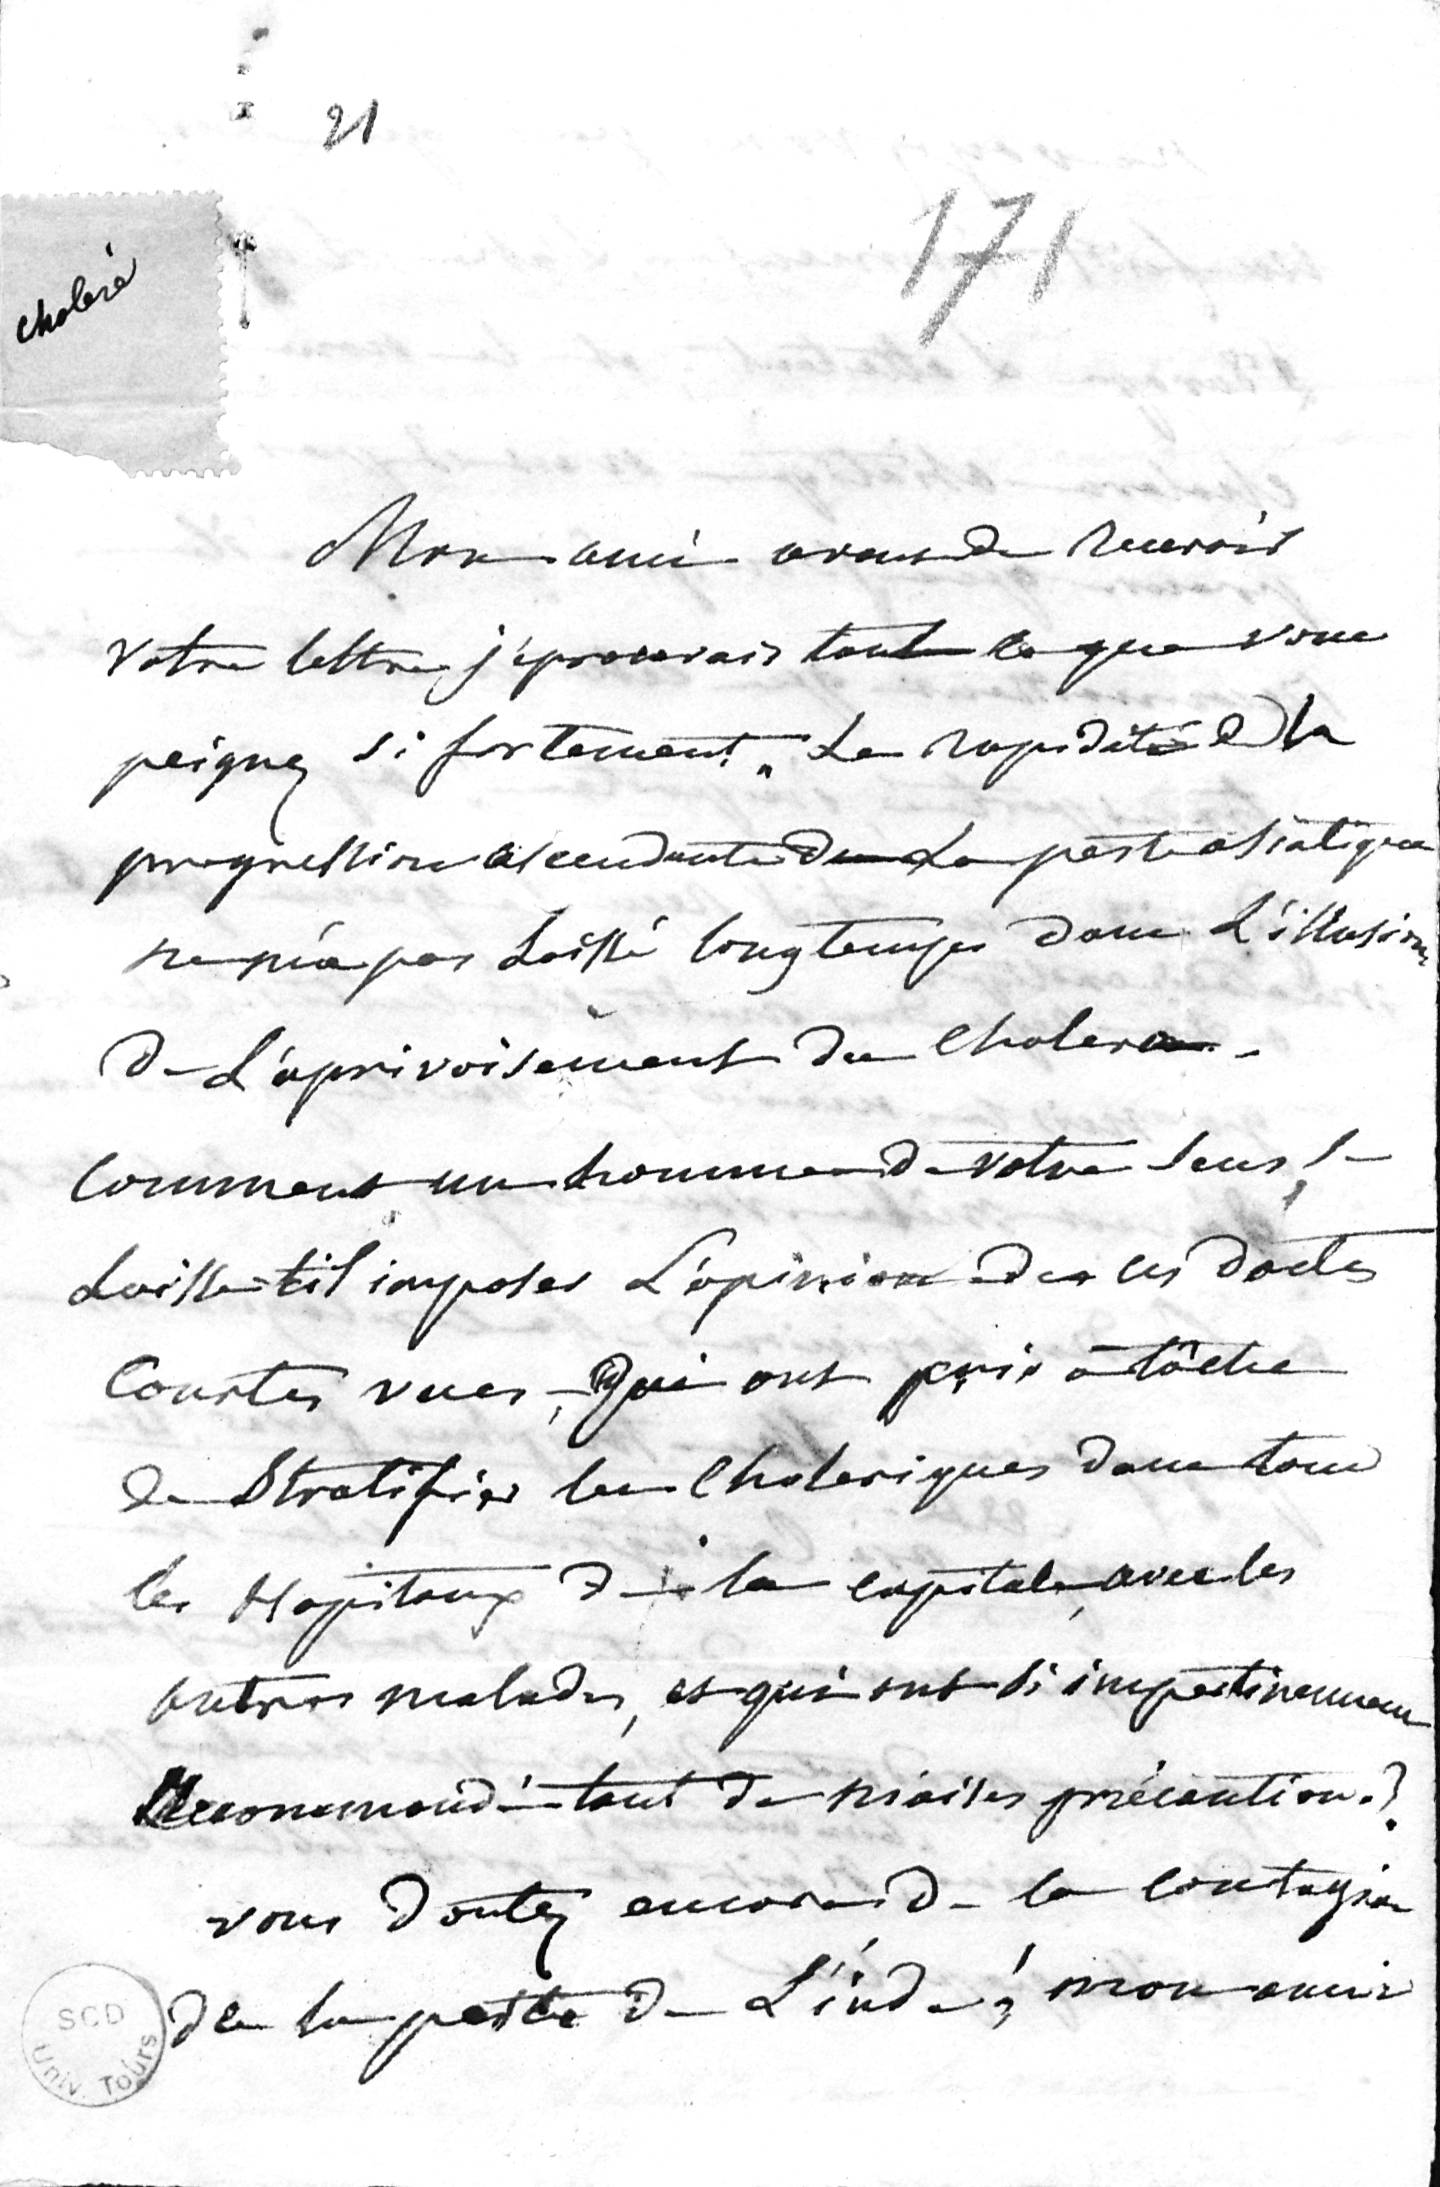 21
171
cholera
Mon ami avant de recevoir
votre lettre j'éprouvais tout ce que vous
peignez si fortement. La rapidité de la
progression ascendante de La peste asiatique
ne m'a pas Laissé longtemps dans L'illusion
de L'aprivoisement du Cholera.
Comment un homme de votre sens, se
Laisse-t-il imposer L'opinion de ces doctes
Courtes vues, Qui ont pris à tâche
de Stratifier les Choleriques dans tous
les Hopitaux de la capitale, avec les
autres malades, et qui ont si impertinemment
Recommandé tant de niaises précautions?
vous doutez encore de la contagion
de la peste de L'inde! mon ami
SCD
Univ. Tours